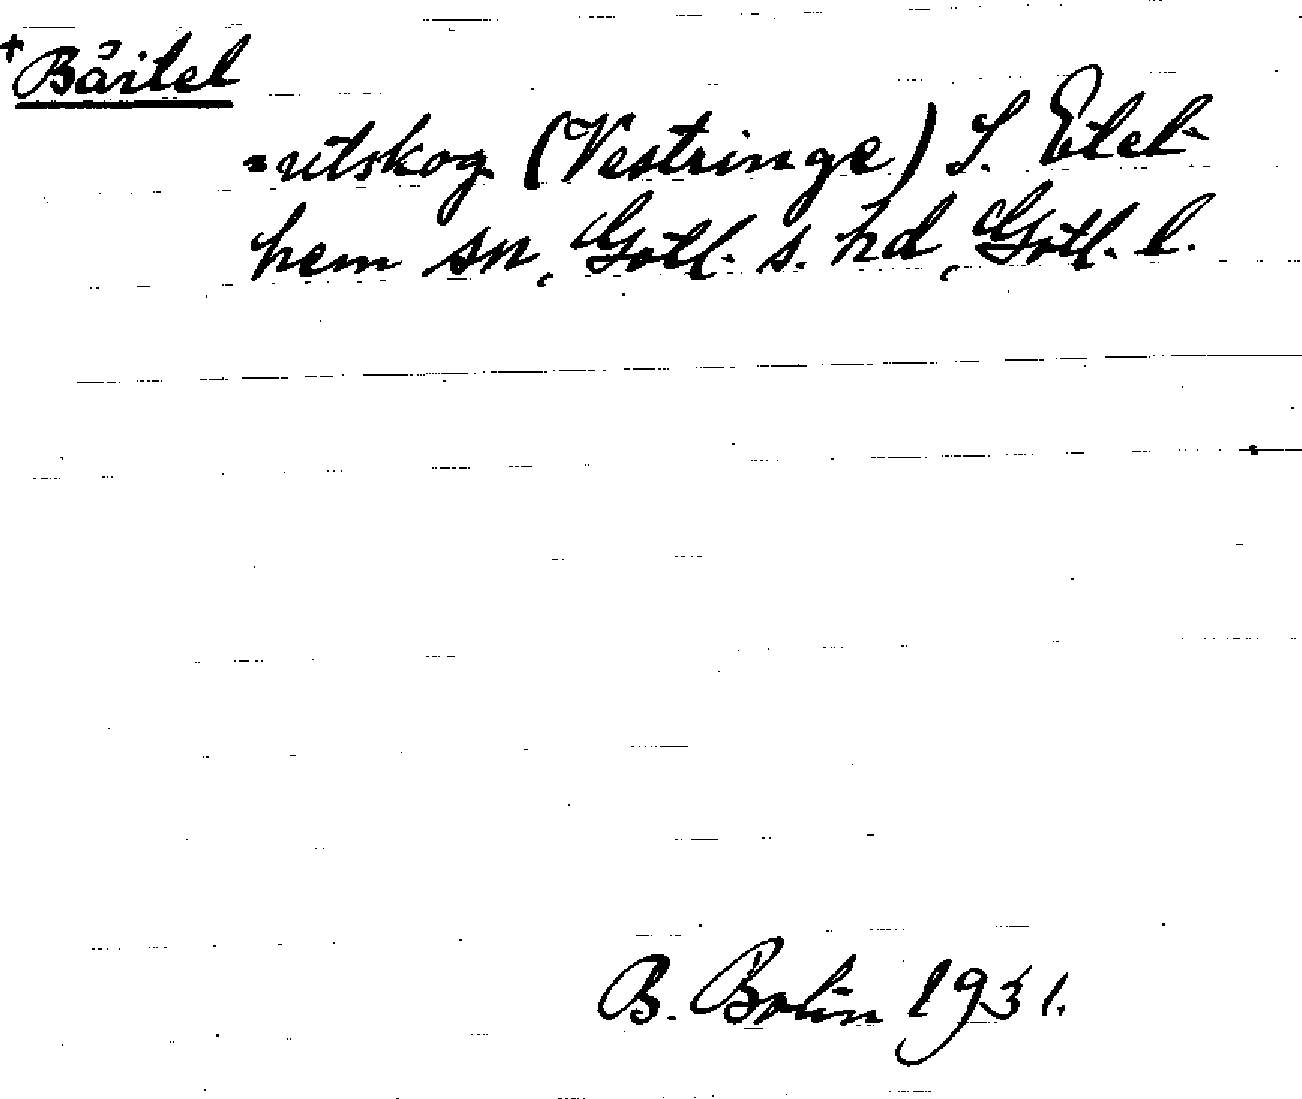 +Båitel
=utskog (Vestringe) I. Etel-
hem sn, Gotl. s. hd, Gotl. l.
B. Bolin 1931.